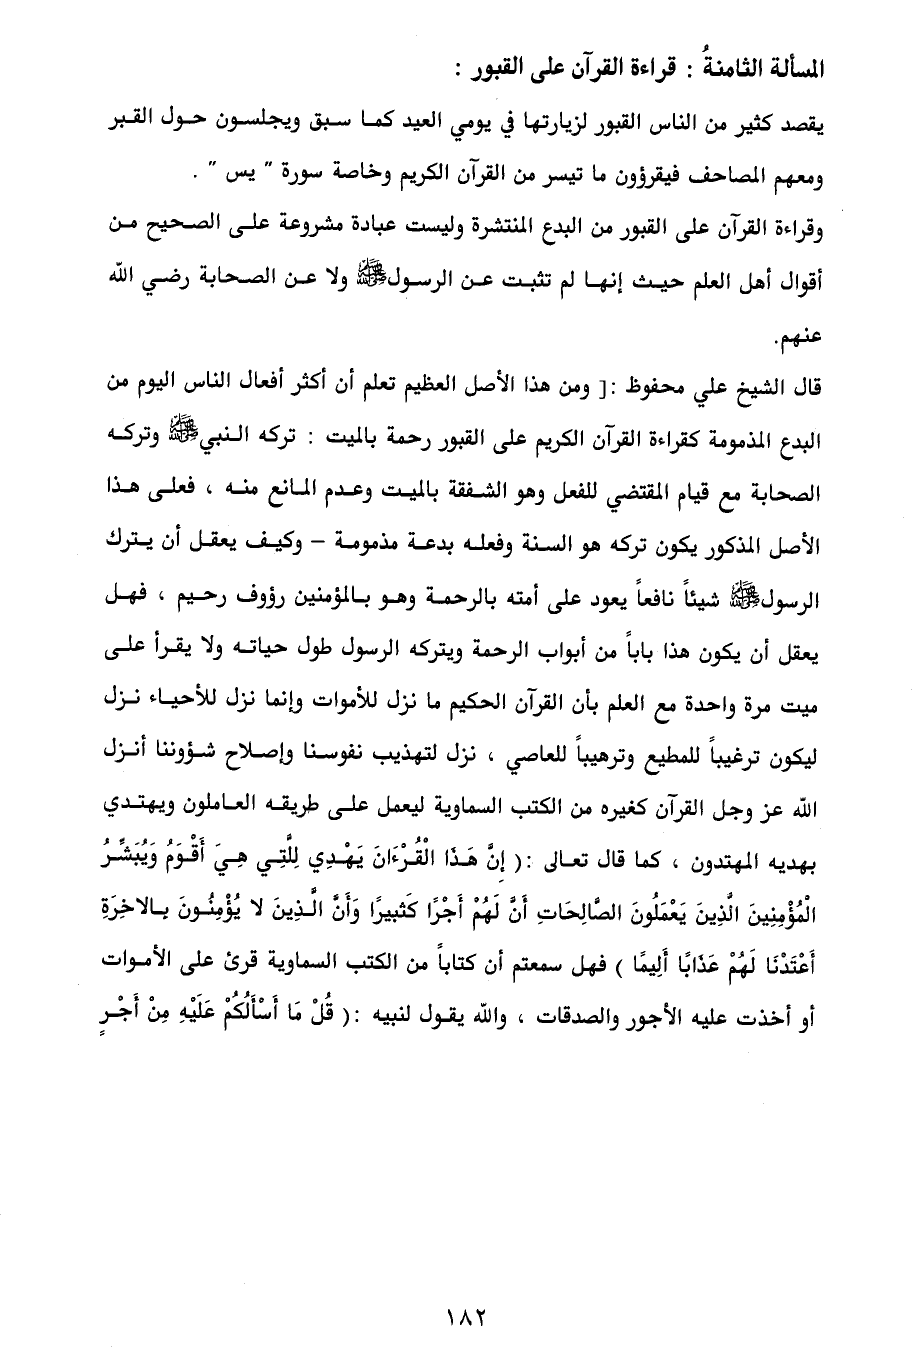 المسألة الثامنةُ : قراءة القرآن على القبور :
يقصد كثير من الناس القبور لزيارتها في يومي العيد كما سبق ويجلسون حول القبر
ومعهم المصاحف فيقرؤون ما تيسر من القرآن الكريم وخاصة سورة " يس " .
وقراءة القرآن على القبور من البدع المنتشرة وليست عبادة مشروعة على الصحيح من
أقوال أهل العلم حيث إنها لم تثبت عن الرسول ﷺ ولا عن الصحابة رضي الله
عنهم.
قال الشيخ علي محفوظ :[ ومن هذا الأصل العظيم تعلم أن أكثر أفعال الناس اليوم من
البدع المذمومة كقراءة القرآن الكريم على القبور رحمة بالميت : تركه النبي ﷺ وتركه
الصحابة مع قيام المقتضي للفعل وهو الشفقة بالميت وعدم المانع منه ، فعلى هذا
الأصل المذكور يكون تركه هو السنة وفعله بدعة مذمومة – وكيف يعقل أن يترك
الرسول ﷺ شيئاً نافعاً يعود على أمته بالرحمة وهو بالمؤمنين رؤوف رحيم ، فهل
يعقل أن يكون هذا باباً من أبواب الرحمة ويتركه الرسول طول حياته ولا يقرأ على
ميت مرة واحدة مع العلم بأن القرآن الحكيم ما نزل للأموات وإنما نزل للأحياء نزل
ليكون ترغيباً للمطيع وترهيباً للعاصي ، نزل لتهذيب نفوسنا وإصلاح شؤوننا أنزل
الله عز وجل القرآن كغيره من الكتب السماوية ليعمل على طريقه العاملون ويهتدي
بهديه المهتدون ، كما قال تعالى :( إِنَّ هَذَا الْقُرْءَانَ يَهْدِي لِلَّتِي هِيَ أَقْوَمُ وَيُبَشِّرُ
الْمُؤْمِنِينَ الَّذِينَ يَعْمَلُونَ الصَّالِحَاتِ أَنَّ لَهُمْ أَجْرًا كَبِيرًا وَأَنَّ الَّذِينَ لا يُؤْمِنُونَ بِالاخِرَةِ
أَعْتَدْنَا لَهُمْ عَذَابًا أَلِيمًا ) فهل سمعتم أن كتاباً من الكتب السماوية قرئ على الأموات
أو أخذت عليه الأجور والصدقات ، والله يقول لنبيه :( قُلْ مَا أَسْأَلُكُمْ عَلَيْهِ مِنْ أَجْرٍ
١٨٢